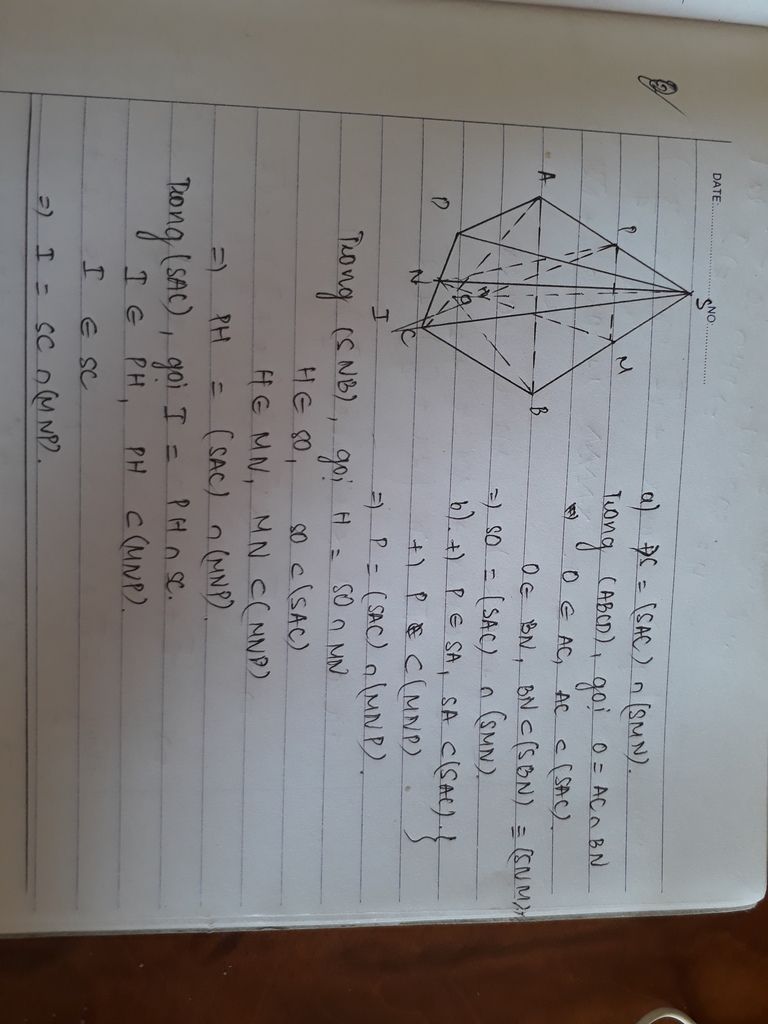 DATE:
NO.
S
P
M
A
B
D
N
O
H
C
I
a) +) S = (SAC) ∩ (SMN).
Trong (ABCD), gọi O = AC ∩ BN
=) O ∈ AC, AC ⊂ (SAC).
O ∈ BN, BN ⊂ (SBN) ≡ (SNM)
=) SO = (SAC) ∩ (SMN).
b). +) P ∈ SA, SA ⊂ (SAC). }
+) P ⊂ (MNP) }
=) P = (SAC) ∩ (MNP).
Trong (SNB), gọi H = SO ∩ MN
H ∈ SO, SO ⊂ (SAC)
H ∈ MN, MN ⊂ (MNP)
=) PH = (SAC) ∩ (MNP).
Trong (SAC), gọi I = PH ∩ SC.
I ∈ PH, PH ⊂ (MNP).
I ∈ SC
=) I = SC ∩ (MNP).